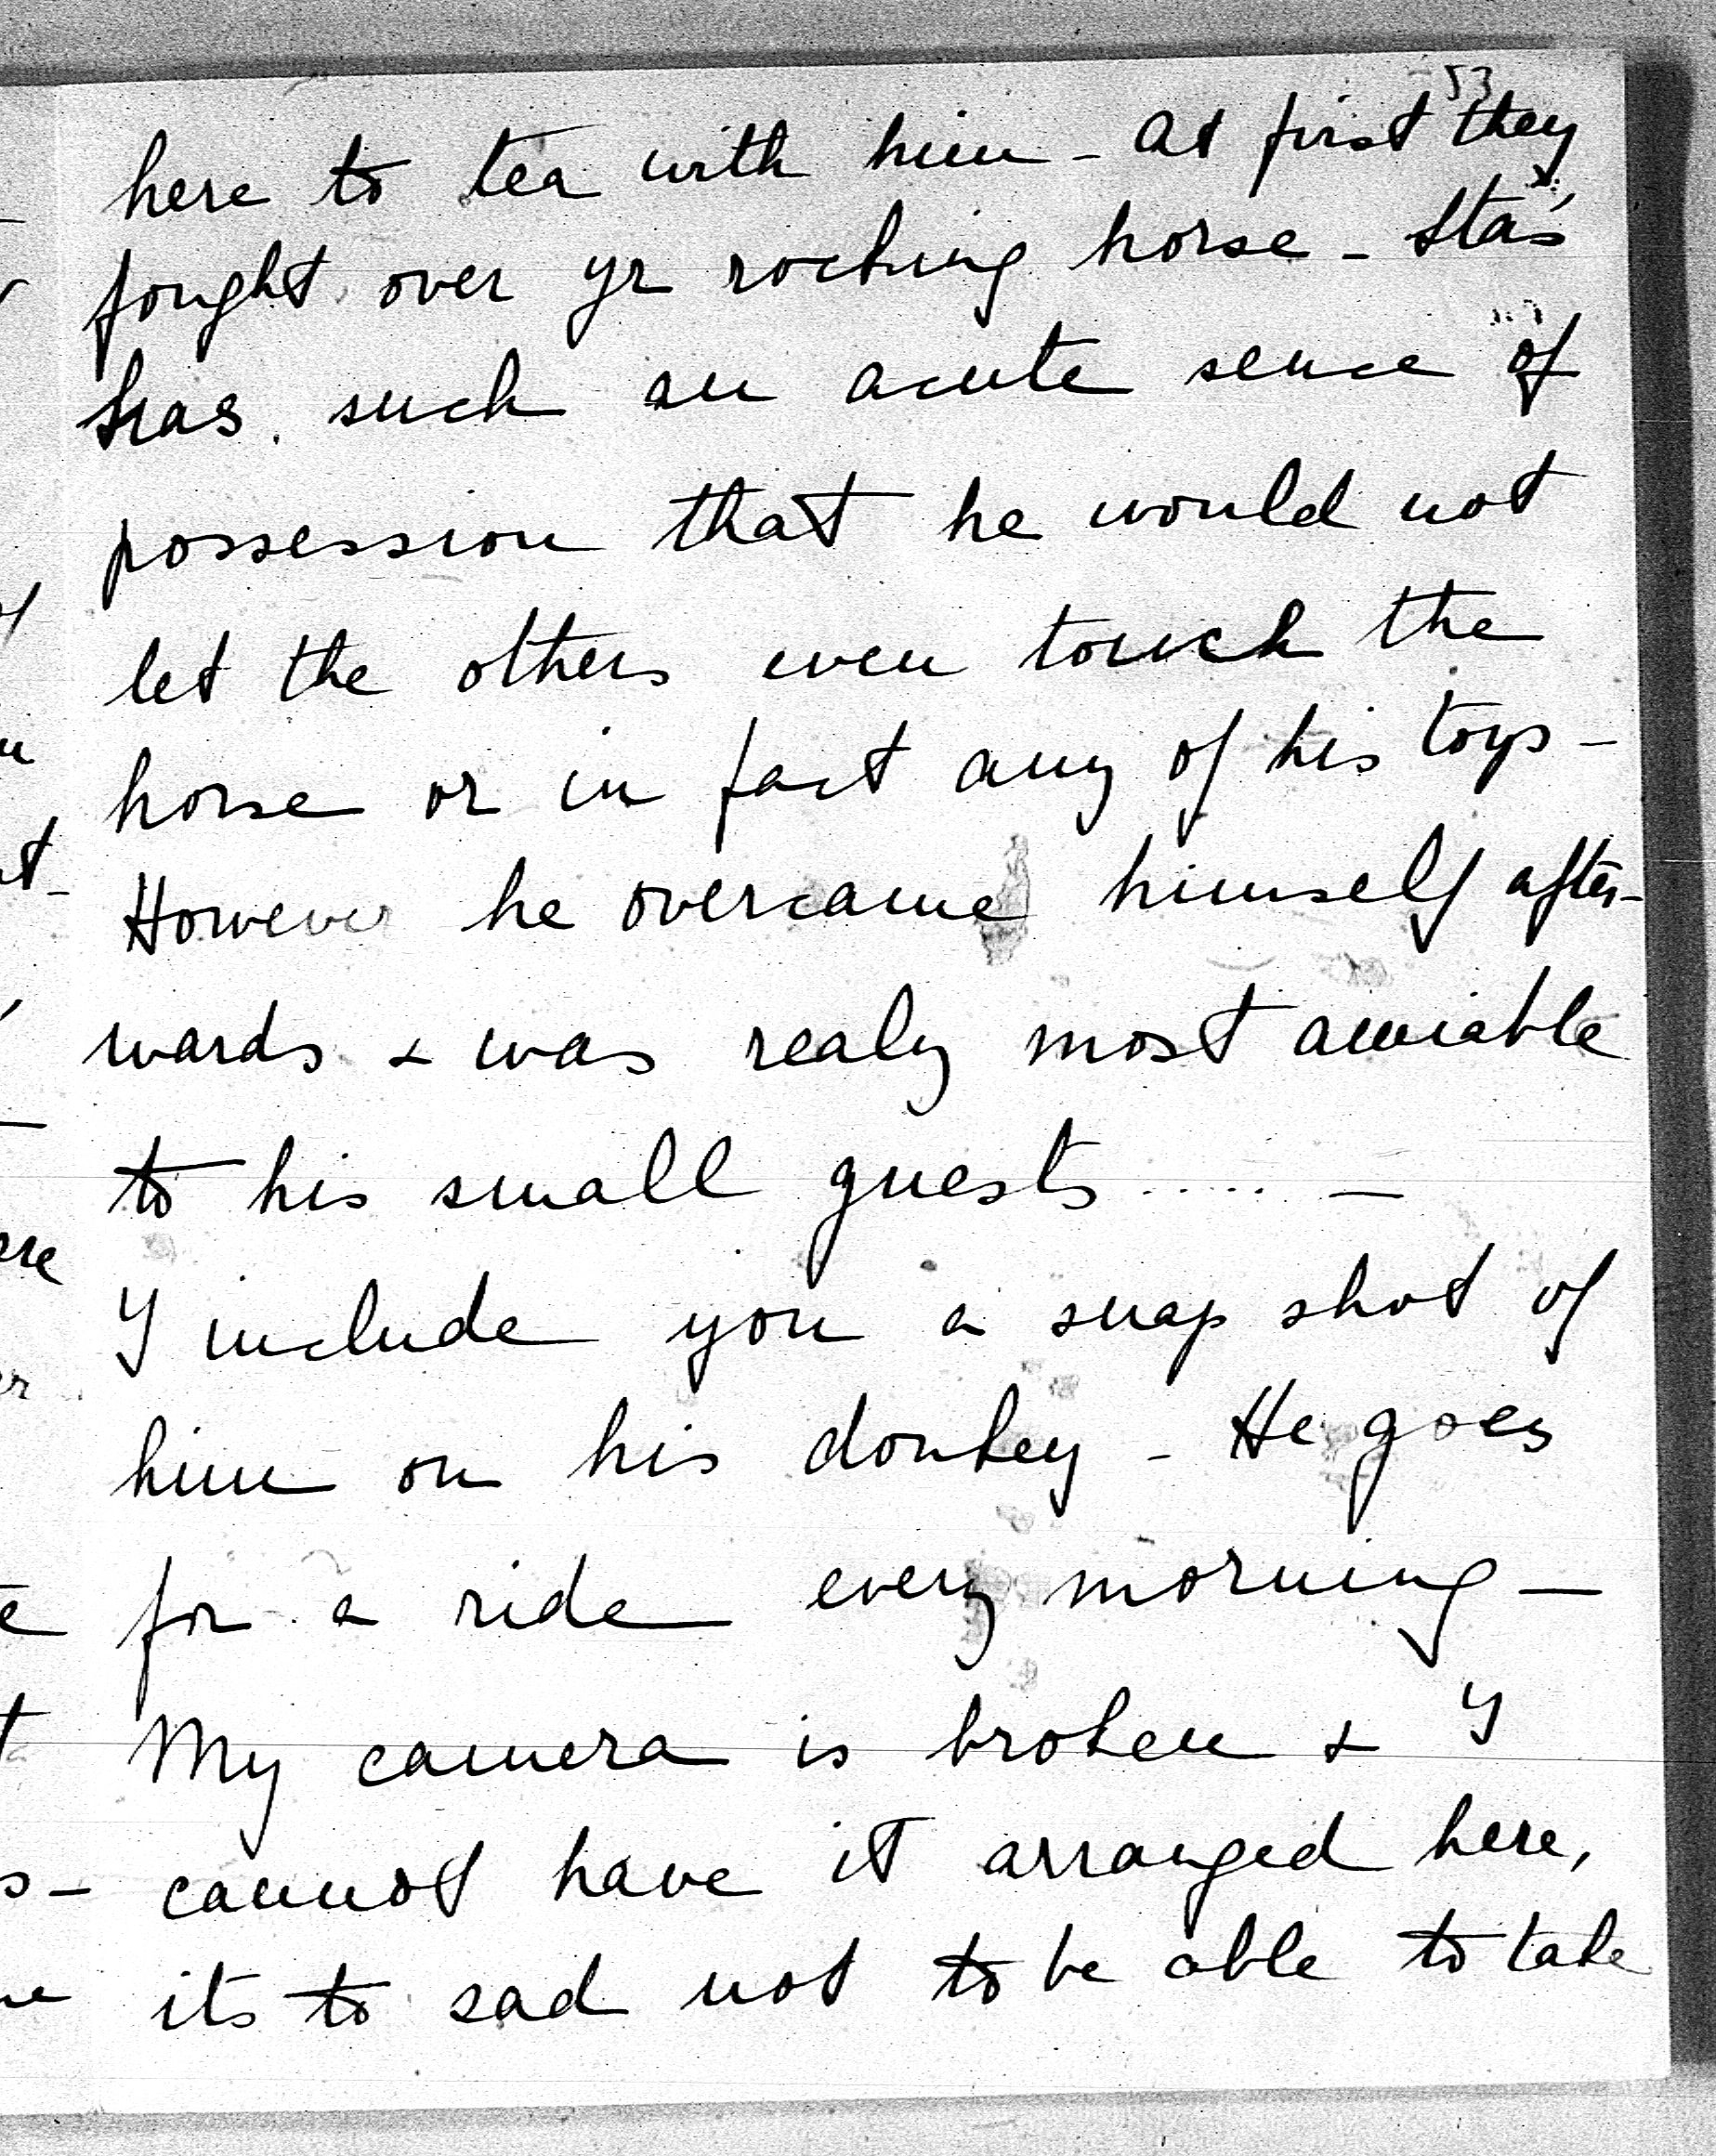 53
here to tea with him - At first they
fought over yr rocking horse - Staś
has such an acute sence of
possession that he would not
let the others even touch the
horse or in fact any of his toys -
However he overcame himself after-
wards & was realy most amiable
to his small guests ..... -
I include you a snap shot of
him on his donkey - He goes
for a ride every morning -
My camera is broken & I
cannot have it arranged here,
its to sad not to be able to take